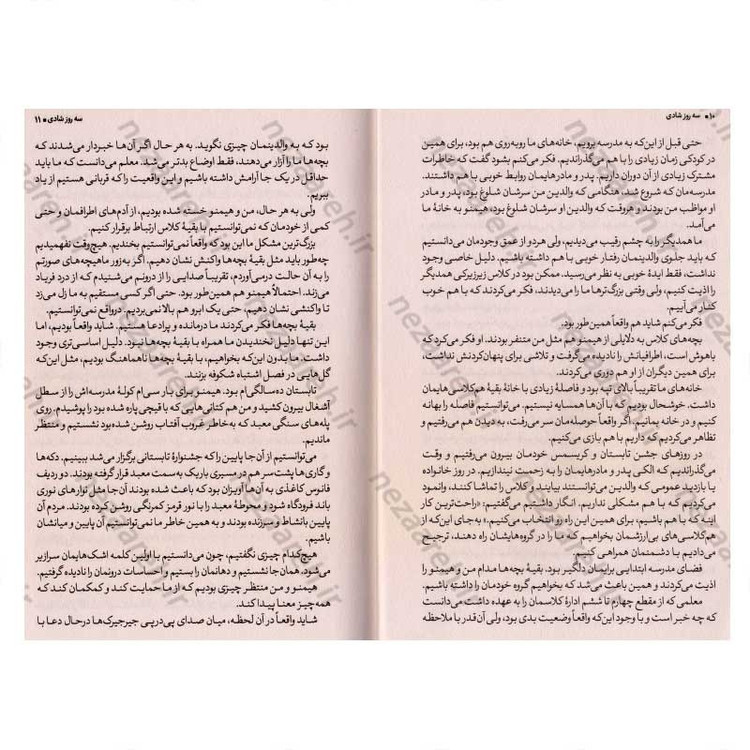 ۱۰ • سه روز شادی
حتی قبل از این‌که به مدرسه برویم، خانه‌های ما روبه‌روی هم بود، برای همین
در کودکی زمان زیادی را با هم می‌گذراندیم. فکر می‌کنم بشود گفت که خاطرات
مشترک زیادی از آن دوران داریم. پدر و مادرهایمان روابط خوبی با هم داشتند.
مدرسه‌مان که شروع شد، هنگامی که والدین من سرشان شلوغ بود، پدر و مادر
او مواظب من بودند و هروقت که والدین او سرشان شلوغ بود، هیمنو به خانهٔ ما
می‌آمد.
ما همدیگر را به چشم رقیب می‌دیدیم، ولی هردو از عمق وجودمان می‌دانستیم
که باید جلوی والدینمان رفتار خوبی با هم داشته باشیم. دلیل خاصی وجود
نداشت، فقط ایدهٔ خوبی به نظر می‌رسید. ممکن بود در کلاس زیرزیرکی همدیگر
را اذیت کنیم، ولی وقتی بزرگ‌ترها ما را می‌دیدند، فکر می‌کردند که با هم خوب
کنار می‌آییم.
فکر می‌کنم شاید هم واقعاً همین‌طور بود.
بچه‌های کلاس به دلایلی از هیمنو هم مثل من متنفر بودند. او فکر می‌کرد که
باهوش است، اطرافیانش را نادیده می‌گرفت و تلاشی برای پنهان‌کردنش نداشت،
برای همین دیگران از او هم دوری می‌کردند.
خانه‌های ما تقریباً بالای تپه بود و فاصلهٔ زیادی با خانهٔ بقیهٔ هم‌کلاسی‌هایمان
داشت. خوشحال بودیم که با آن‌ها همسایه نیستیم. می‌توانستیم فاصله را بهانه
کنیم و در خانه بمانیم. اگر واقعاً حوصله‌مان سر می‌رفت، به دیدن هم می‌رفتیم و
تظاهر می‌کردیم که داریم با هم بازی می‌کنیم.
در روزهای جشن تابستان و کریسمس خودمان بیرون می‌رفتیم و وقت
می‌گذراندیم که الکی پدر و مادرهایمان را به زحمت نیندازیم. در روز خانواده
یا بازدید عمومی که والدین می‌توانستند بیایند و کلاس را تماشا کنند، وانمود
می‌کردیم که با هم مشکلی نداریم. انگار داشتیم می‌گفتیم: «راحت‌ترین کار
اینه که با هم باشیم، برای همین این راه رو انتخاب می‌کنیم.» به‌جای این‌که از
هم‌کلاسی‌های بی‌ارزشمان بخواهیم که ما را در گروه‌هایشان راه دهند، ترجیح
می‌دادیم با دشمنمان همراهی کنیم.
فضای مدرسه ابتدایی برایمان دلگیر بود. بقیهٔ بچه‌ها مدام من و هیمنو را
اذیت می‌کردند و همین باعث می‌شد که بخواهیم گروه خودمان را داشته باشیم.
معلمی که از مقطع چهارم تا ششم ادارهٔ کلاسمان را به عهده داشت می‌دانست
که چه خبر است و با وجود این‌که واقعاً وضعیت بدی بود، ولی آن‌قدر با ملاحظه
سه روز شادی • ۱۱
بود که به والدینمان چیزی نگوید. به هر حال اگر آن‌ها خبردار می‌شدند که
بچه‌ها ما را آزار می‌دهند، فقط اوضاع بدتر می‌شد. معلم می‌دانست که ما باید
حداقل در یک جا آرامش داشته باشیم و این واقعیت را که قربانی هستیم از یاد
ببریم.
ولی به هر حال، من و هیمنو خسته شده بودیم، از آدم‌های اطرافمان و حتی
کمی از خودمان که نمی‌توانستیم با بقیهٔ کلاس ارتباط برقرار کنیم.
بزرگ‌ترین مشکل ما این بود که واقعاً نمی‌توانستیم بخندیم. هیچ‌وقت نفهمیدیم
چه‌طور باید مثل بقیهٔ بچه‌ها واکنش نشان دهیم. اگر به‌زور ماهیچه‌های صورتم
را به آن حالت درمی‌آوردم، تقریباً صدایی را از درونم می‌شنیدم که از درد فریاد
می‌زند. احتمالاً هیمنو هم همین‌طور بود. حتی اگر کسی مستقیم به ما زل می‌زد
تا واکنشی نشان دهیم، حتی یک ابرو هم بالا نمی‌بردیم. درواقع نمی‌توانستیم.
بقیهٔ بچه‌ها فکر می‌کردند ما درمانده و پرادعا هستیم. شاید واقعاً بودیم، اما
این تنها دلیل نخندیدن ما همراه با بقیهٔ بچه‌ها نبود. دلیل اساسی‌تری وجود
داشت. ما بدون این‌که بخواهیم، با بقیهٔ بچه‌ها ناهماهنگ بودیم، مثل این‌که
گل‌هایی در فصل اشتباه شکوفه بزنند.
تابستان ده‌سالگی‌ام بود. هیمنو برای بار سی‌ام کولهٔ مدرسه‌اش را از سطل
آشغال بیرون کشید و من هم کتانی‌هایی که با قیچی پاره شده بود را پوشیدم. روی
پله‌های سنگی معبد که به‌خاطر غروب آفتاب روشن شده بود نشستیم و منتظر
ماندیم.
می‌توانستیم از آن‌جا پایین را که جشنوارهٔ تابستانی برگزار می‌شد ببینیم. دکه‌ها
و گاری‌ها پشت‌سر هم در مسیری باریک به‌سمت معبد قرار گرفته بودند. دو ردیف
فانوس کاغذی به آن‌ها آویزان بود که باعث شده بودند آن‌جا مثل نوارهای نوری
باند فرودگاه شود و محوطهٔ معبد را با نور قرمز کمرنگی روشن کرده بودند. مردم آن
پایین بانشاط و سرزنده بودند و به همین خاطر ما نمی‌توانستیم آن پایین و میانشان
باشیم.
هیچ‌کدام چیزی نگفتیم، چون می‌دانستیم با اولین کلمه اشک‌هایمان سرازیر
می‌شود. همان‌جا نشستیم و دهانمان را بستیم و احساسات درونمان را نادیده گرفتیم.
هیمنو و من منتظر چیزی بودیم که از ما حمایت کند و کمکمان کند که
همه‌چیز معنا پیدا کند.
شاید واقعاً در آن لحظه، میان صدای پی‌درپی جیرجیرک‌ها درحال دعا با
nezaareh.ir